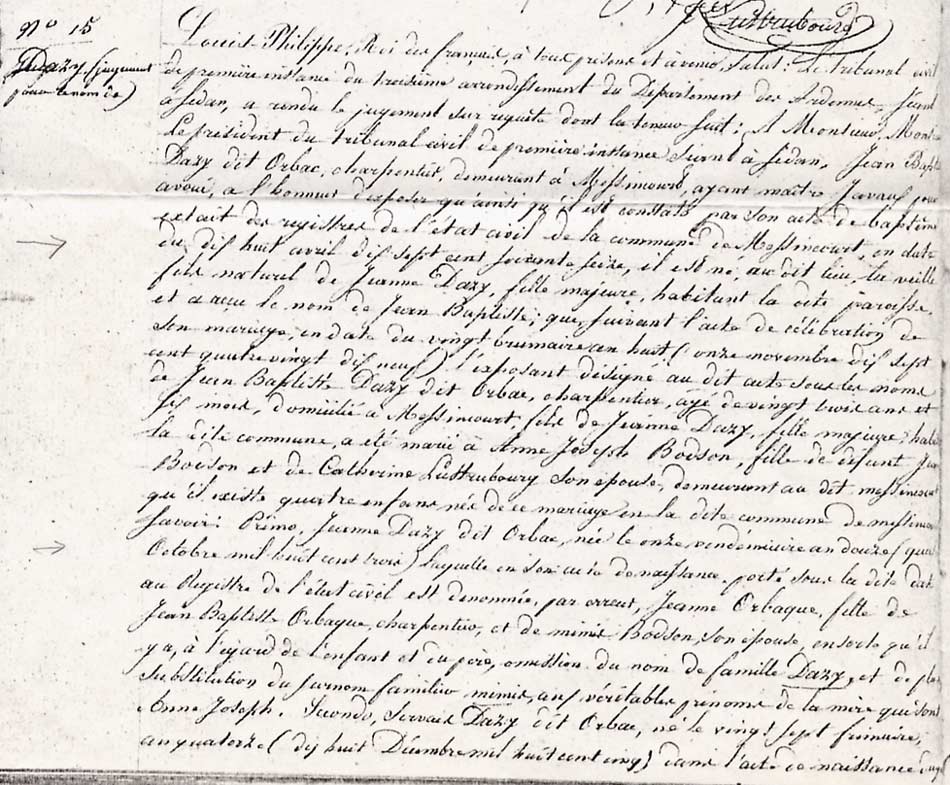 Lustrubourg
N° 15
Dazy (jugement
pour le nom de)
Louis Philippe, Roi des français, à tous présens et à venir, Salut: Le tribunal civil
de première instance du troisième arrondissement du Département des Ardennes, séant
à Sedan, a rendu le jugement sur requête dont la teneur suit: A Monsieur,
Le président du tribunal civil de première instance séant à Sedan, Jean Bapti
Dazy dit Orbac, charpentier, demeurant à Messincourt, ayant maître Javaux pour
avoué, a l'honneur d'exposer qu'ainsi qu'il est constaté par son acte de baptême
extrait des registres de l'état civil de la commune de Messincourt, en date
du dix huit avril dix sept cent soixante seize, il est né, au dit lieu, la veille
fils naturel de Jeanne Dazy, fille majeure, habitant la dite paroisse,
et a reçu le nom de Jean Baptiste; que, suivant l'acte de célébration de
son mariage, en date du vingt brumaire an huit, (onze novembre dix sept
cent quatre vingt dix neuf) l'exposant désigné au dit acte sous les noms
de Jean Baptiste Dazy dit Orbac, charpentier, agé de vingt trois ans et
six mois, domicilié à Messincourt, fils de Jeanne Dazy, fille majeure
la dite commune, a été marié à Anne Joseph Bodson, fille de défunt Jean
Bodson et de Catherine Lustrubourg son épouse, demeurant au dit messincourt
qu'il existe quatre enfans nés de ce mariage en la dite commune de messincour
Savoir: Primo, Jeanne Dazy dit Orbac, née le onze vendémiaire an douze (quatre
Octobre mil huit cent trois) laquelle en son acte de naissance porté sous la dite date
au Registre de l'état civil est dénommée, par erreur, Jeanne Orbaque, fille de
Jean Baptiste Orbaque, charpentier, et de mimie Bodson, son épouse, ensorte qu'il
y a, à l'égard de l'enfant et du père, omission du nom de famille Dazy, et de plus
substitution du surnom familier mimie, aux véritables prénoms de la mère qui sont
Anne Joseph. Secondo, Servais Dazy dit Orbac, né le vingt sept frimaire,
an quatorze (dix huit Décembre mil huit cent cinq) dans l'acte de naissance